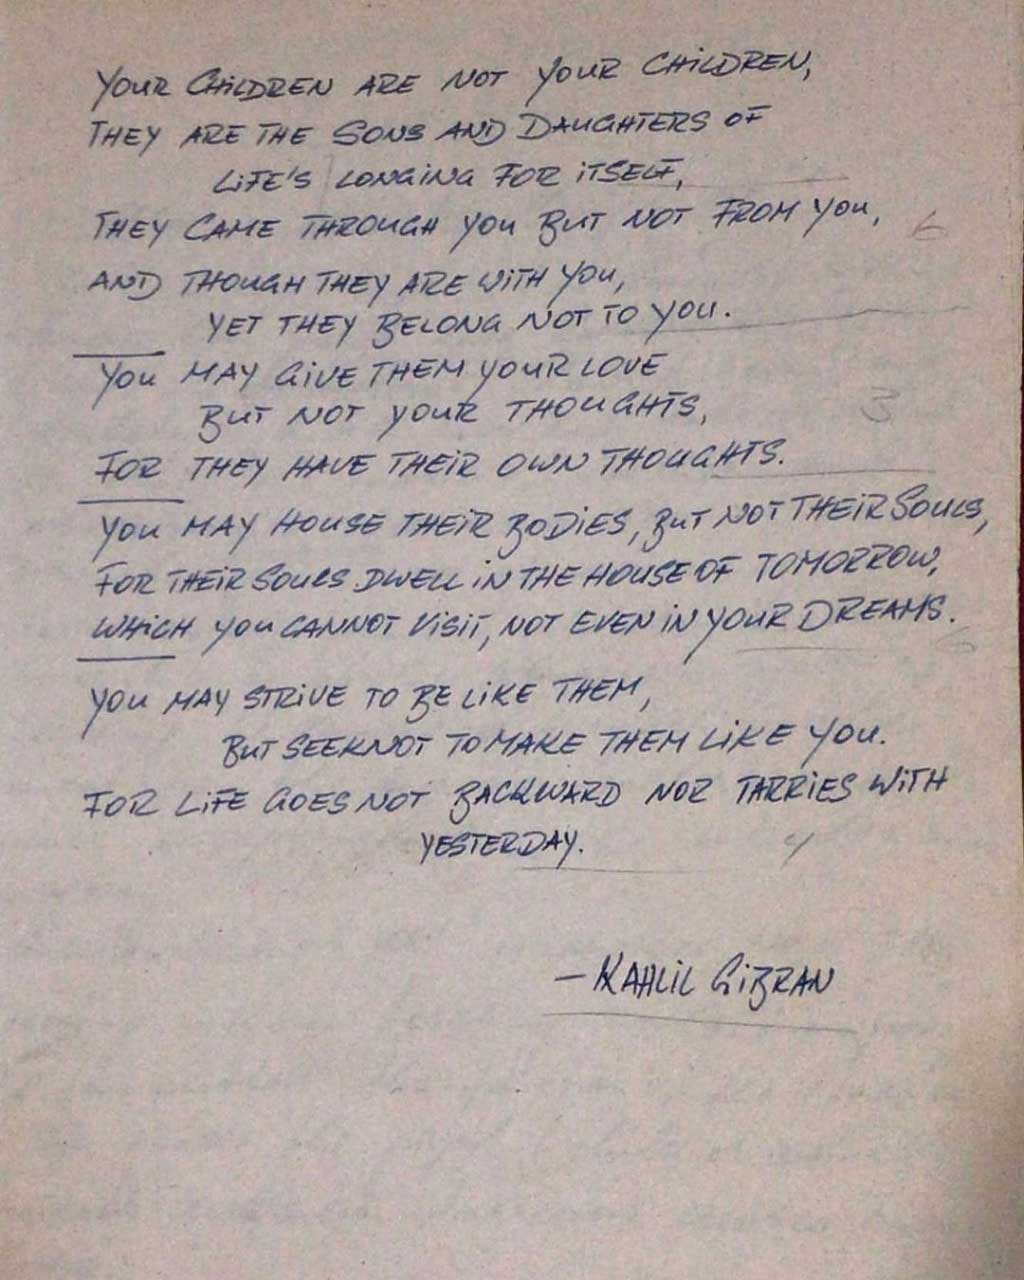 YOUR CHiLDREN ARE NOT YOUR CHiLDREN,
THEY ARE THE SONS AND DAUGHTERS OF
LiFE'S LONGiNG FOR iTSELF,
THEY CAME THROUGH YOU BUT NOT FROM YOU, 6
AND THOUGH THEY ARE WiTH YOU,
YET THEY BELONG NOT TO YOU.
YOU MAY GiVE THEM YOUR LOVE
BUT NOT YOUR THOUGHTS, 3
FOR THEY HAVE THEiR OWN THOUGHTS.
YOU MAY HOUSE THEiR BODiES, BUT NOT THEiR SOULS,
FOR THEiR SOULS DWELL iN THE HOUSE OF TOMORROW,
WHiCH YOU CANNOT ViSiT, NOT EVEN iN YOUR DREAMS.
YOU MAY STRiVE TO BE LiKE THEM,
BUT SEEK NOT TO MAKE THEM LiKE YOU.
FOR LiFE GOES NOT BACKWARD NOR TARRiES WiTH
YESTERDAY. 4
— KAHLiL GiBRAN